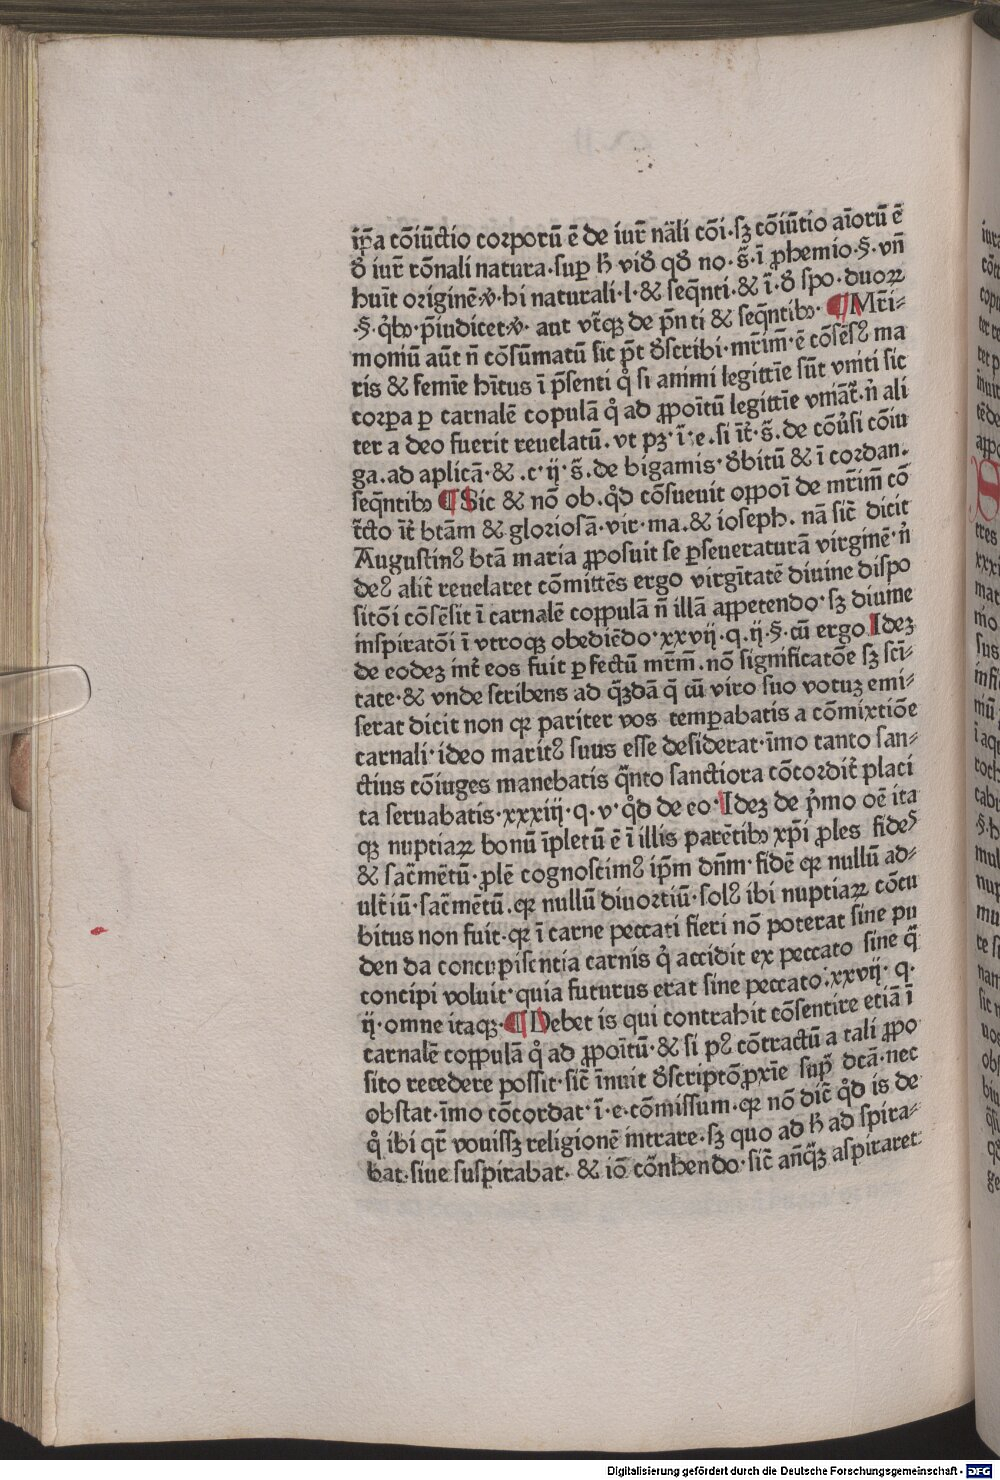 ip̄a cōiūctio corporū ē de iur̄ nāli cōi·sꝫ cōiūtio aīorū ē
ꝺ̄ iur̄ rōnali natura·sup̱ ħ viꝺ̄ qꝺ̄ no·s̄·ī ꝓhemio·§·vn̄
huīt originē·ꝟ·hi naturali·l·& seq̄nti·& ī·ꝺ̄ spo·duoꝝ
·§·q̇bꝰ·p̄iudicet·ꝟ· aut vtͬꝫ de p̄nti & seq̄ntibꝰ· ¶ Mr̄i-
moniū aūt n̄ cōsūmatū sic p̄t ꝺ̄scribi·mr̄im̄·ē cōsēsꝰ ma
ris & femīe hītus ī p̄senti q̇ si animi legittīe sūt vniti sic
corꝑa ꝑ carnalē copulā q̇ ad ꝓpoītū legittīe vniāt̄·n̓ ali
ter a deo fuerit reuelatū·vt pꝫ·ī·e·si īt̄·s̄·de cōu̓si cōiu
ga·ad aplicā·&·c·ij·s̄·de bigamis·ꝺ̄bitū & ī cordan·
seq̄ntibꝰ ¶ Sic & nō ob·q̇d cōsueuit oꝓpoī de mr̄im̄ cō
tͨcto īt̄ btām & gloriosā·vir·ma·& ioseph· nā sic̄ dicit
Augustinꝰ btā maria ꝓposuit se ꝑseueraturā virginē·n̓
deꝰ alit̄ reuelaret cōmittēs ergo virgītatē diuine dispo
sitōi cōsēsit ī carnalē coꝓpulā n̄ illā aꝓpetendo·sꝫ diuine
inspiratōi ī vtroqꝫ obediēdo·xxvij·q·ij·§·cū ergo Ideꝫ
de eodeꝫ int̄ eos fuit ꝑfectū mr̄m̄·nō significatōe sꝫ scī-
tate·& vnde scribens ad q̄ꝫdā q̄ cū viro suo votuꝫ emi-
serat dicit non qꝛ pariter vos temꝑabatis a cōmixtiōe
carnali·ideo maritꝰ suus esse desiderat·īmo tanto san-
ctius cōiuges manebatis q̄nto sanctiora cōcordit̄ placi
ta seruabatis·xxxiij·q·v·q̇d de eo·Idez de p̓mo oē ita
qꝫ nuptiaꝝ bonū īpletū ē ī illis parētibꝰ xp̄i ꝓles fideˢ
& sac̄mētū·ꝓlē cognoscimꝰ ip̄m dn̄m·fidē qꝛ nullū ad-
ult̄iū·sac̄mētū·qꝛ nullū diuortiū·solꝰ ibi nuptiaꝝ cōcu
bitus non fuit·qꝛ ī carne peccati fieri nō poterat sine pu
den da concupiscentia carnis q̇ accidit ex peccato sine q̄
concipi voluit·quia futurus erat sine peccato·xxvij·q·
ij·omne itaqꝫ·¶ Debet is qui contrahit cōsentire etiā ī
carnalē coꝓpulā q̇ ad ꝓpoītū·& si pꝰ cōtractū a tali ꝓpo
sito recedere possit·sic̄ īnuit ꝺ̄scriptō ꝓxīe sup̄ dcā·nec
obstat·īmo cōcordat·ī·e·cōmissum·qꝛ nō dic̄ q̇d is de
q̇ ibi qr̄ vouissꝫ religionē intrare·sꝫ quo ad ħ ad spira-
bat·siue suspirabat·& iō cōnhendo·sic̄ an̄q̄ꝫ aspiraret·
Digitalisierung gefördert durch die Deutsche Forschungsgemeinschaft - DFG